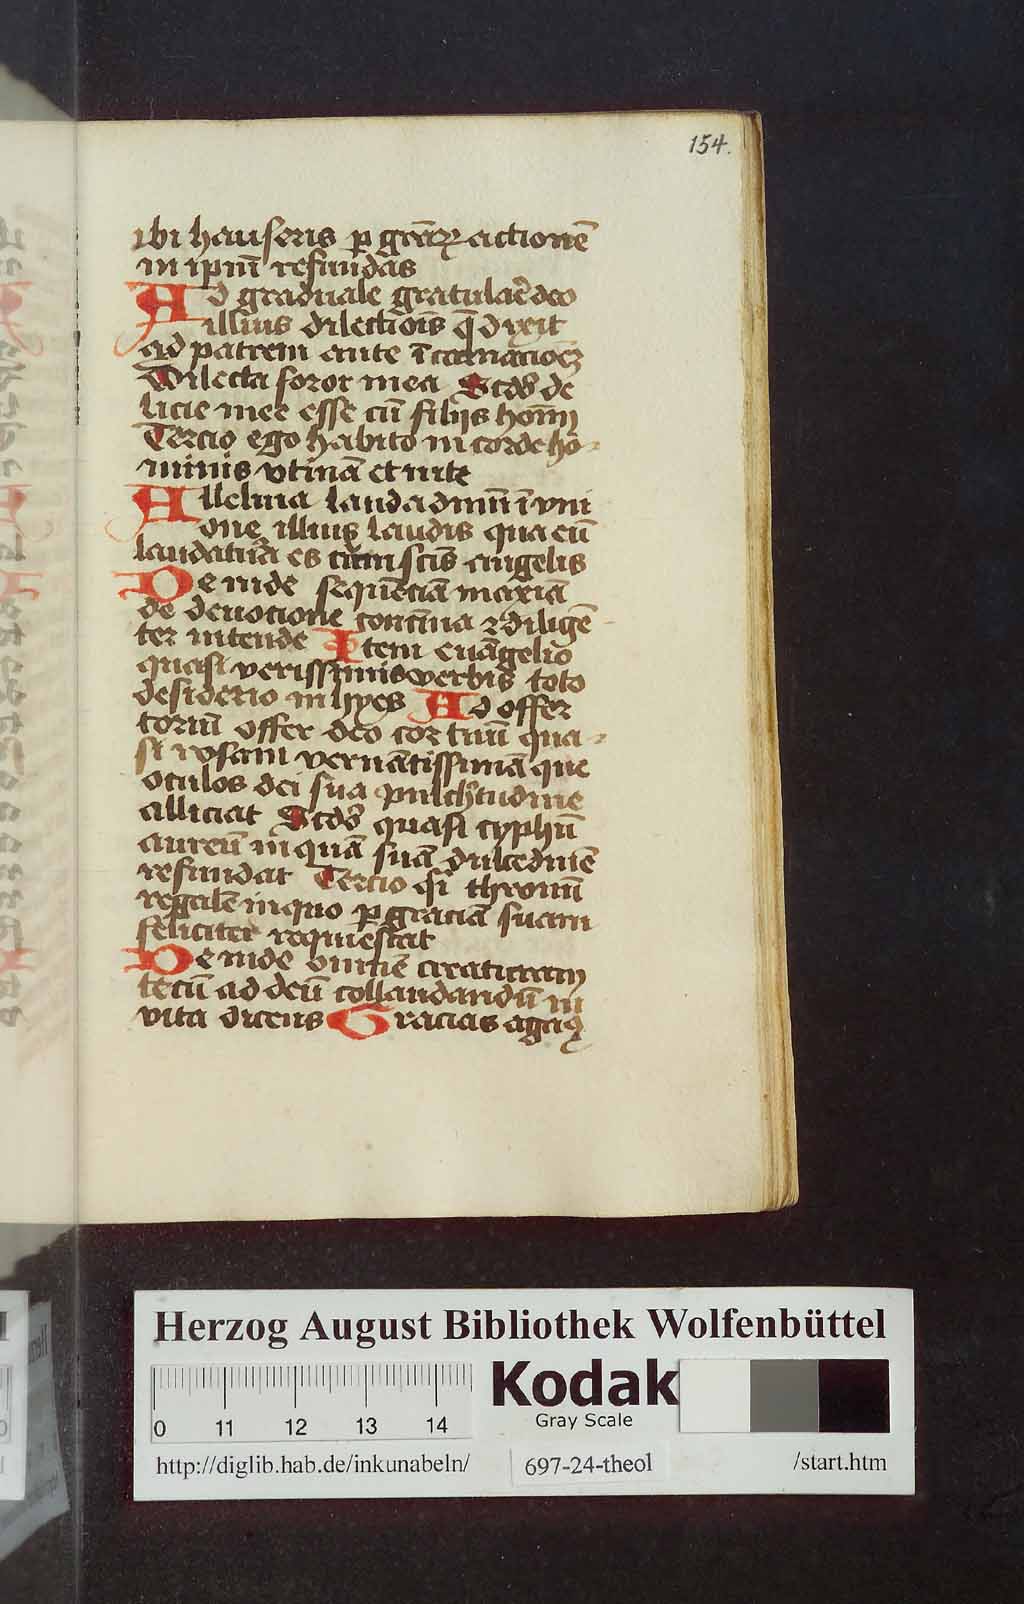 154.
ibi hauseris ꝑ gr̄aꝝ actionē
in ipm̄ refundas
Ad graduale gratulare deo
illius dilectiois̄ q̄ dixit
ad patrem ante īcarnacioēꝫ
Dilecta soror mea Scd̓o de
licie mee esse cū filijs hoīm
Tercio ego habito in corde ho-
minis vtinā et in te
Alleluia lauda dmn̄ ī vni
one illius laudis qua eū
laudatura es cum scīs angelis
Deinde sequēciā maxīa
de deuotione contīna ꝛ diligē
ter intende Item euāgelio
quasi verissimis verbis toto
desiderio inhyes Ad offer
toriū offer deo cor tuū qua-
si rosam vernātissimā que
oculos dei sua pulcħtudine
alliciat Scd̓o quasi cyphū
aureū in quā suā dulcedinē
refundat Tercio q̄si thronū
regalē in quo ꝑ graciā suam
feliciter requiescat
Deinde omnē creaturam
tecū ad deū collaudandū in
vita dicens Gracias agaꝰ
Herzog August Bibliothek Wolfenbüttel
Kodak
Gray Scale
0 11 12 13 14
http://diglib.hab.de/inkunabeln/ 697-24-theol /start.htm